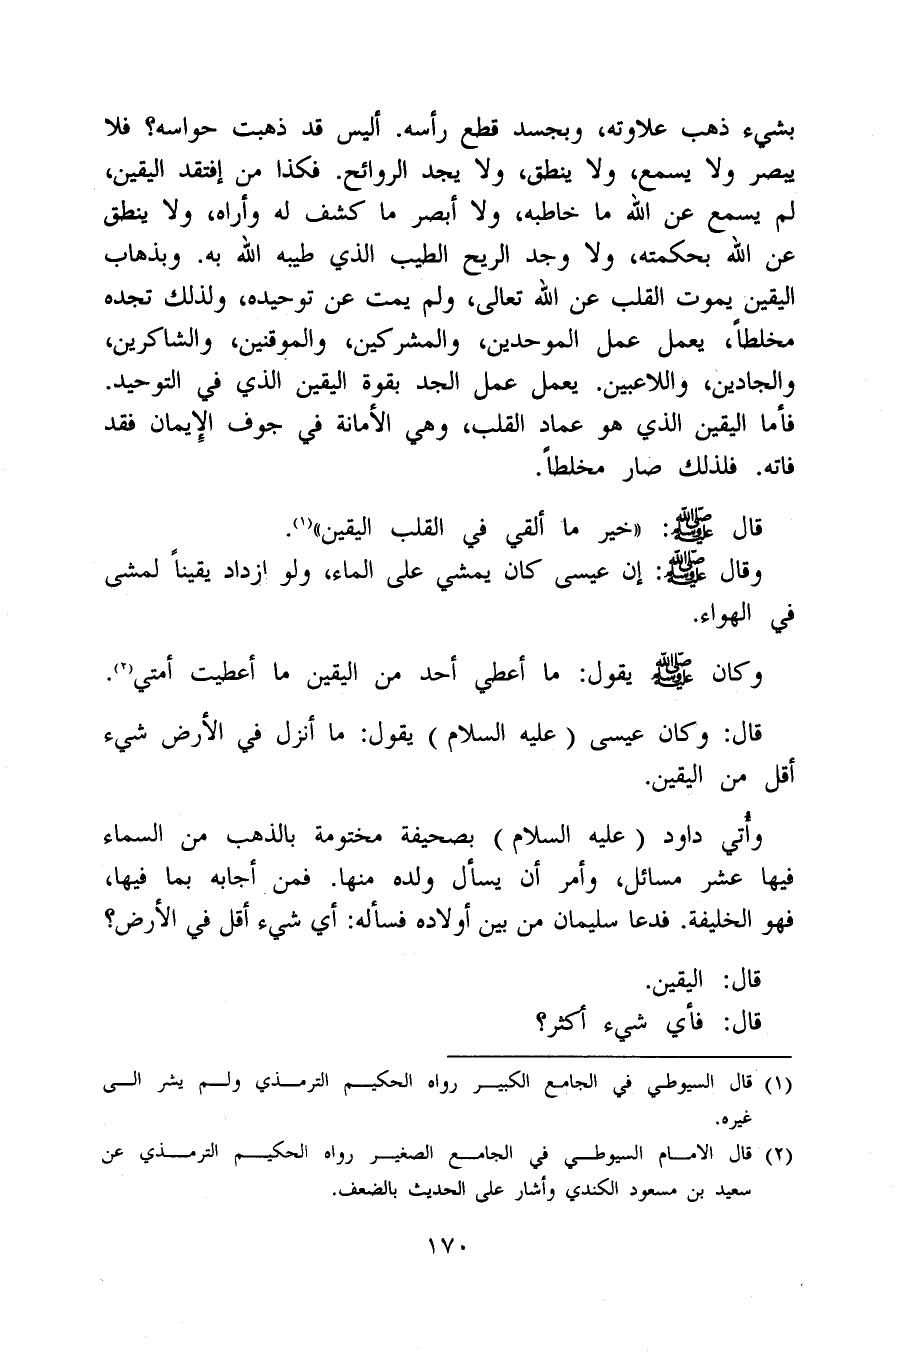 بشيء ذهب علاوته، وبجسد قطع رأسه. أليس قد ذهبت حواسه؟ فلا
يبصر ولا يسمع، ولا ينطق، ولا يجد الروائح. فكذا من إفتقد اليقين،
لم يسمع عن الله ما خاطبه، ولا أبصر ما كشف له وأراه، ولا ينطق
عن الله بحكمته، ولا وجد الريح الطيب الذي طيبه الله به. وبذهاب
اليقين يموت القلب عن الله تعالى، ولم يمت عن توحيده، ولذلك تجده
مخلطاً، يعمل عمل الموحدين، والمشركين، والموقنين، والشاكرين،
والجادين، واللاعبين. يعمل عمل الجد بقوة اليقين الذي في التوحيد.
فأما اليقين الذي هو عماد القلب، وهي الأمانة في جوف الإيمان فقد
فاته. فلذلك صار مخلطاً.
قال ﷺ: «خير ما ألقي في القلب اليقين»(١).
وقال ﷺ: إن عيسى كان يمشي على الماء، ولو ازداد يقيناً لمشى
في الهواء.
وكان ﷺ يقول: ما أعطي أحد من اليقين ما أعطيت أمتي(٢).
قال: وكان عيسى ( عليه السلام ) يقول: ما أنزل في الأرض شيء
أقل من اليقين.
وأُتي داود ( عليه السلام ) بصحيفة مختومة بالذهب من السماء
فيها عشر مسائل، وأمر أن يسأل ولده منها. فمن أجابه بما فيها،
فهو الخليفة. فدعا سليمان من بين أولاده فسأله: أي شيء أقل في الأرض؟
قال: اليقين.
قال: فأي شيء أكثر؟
(١) قال السيوطي في الجامع الكبير رواه الحكيم الترمذي ولم يشر الى
غيره.
(٢) قال الامام السيوطي في الجامع الصغير رواه الحكيم الترمذي عن
سعيد بن مسعود الكندي وأشار على الحديث بالضعف.
١٧٠